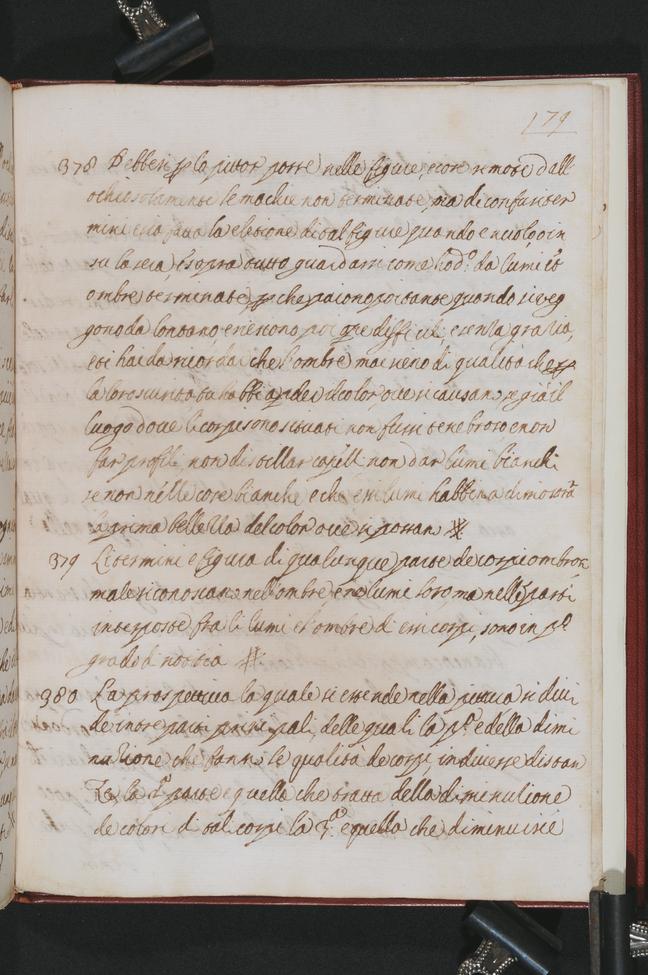 179
378 Debbesi p la pittor porre nelle figure e cose remote dall
ochio solamente le machie non terminate, ma di confusi ter
mini e sia fatta la eletione di tal figure quando e nuvolo o in
su la sera e sopra tutto guardarsi come ho d.º da lumi et
ombre terminate, p che paiono poi tante quando si veg
gono da lontano, e riescono poi opre difficili, e senza gratia,
e ti hai da ricordar che l'ombre mai sieno di qualità che p
la loro scurità tu habbi a pder il color ove si causano, se già il
luogo dove li corpi sono situati non fussi tenebroso e non
far profili, non distillar capelli non dar lumi bianchi
se non nelle cose bianche, e che essi lumi habbin a dimostrar
la prima bellezza del color ove si posan
379 Li termini e figura di qualunque parte de corpi ombrosi
male si conoscano nell'ombre e ne lumi loro, ma nelle parti
interposte fra li lumi e l'ombre d' essi corpi, sono in p.º
grado di notitia
380 La prospettiva la quale si estende nella pittura si divi
de in tre parti principali, delle quali la p.ª e della dimi
nutione che fanno le qualità de corpi in diverse distan
ze, la 2.ª parte e quella che tratta della diminutione
de colori di tal corpi la 3.ª e quella che diminuisce